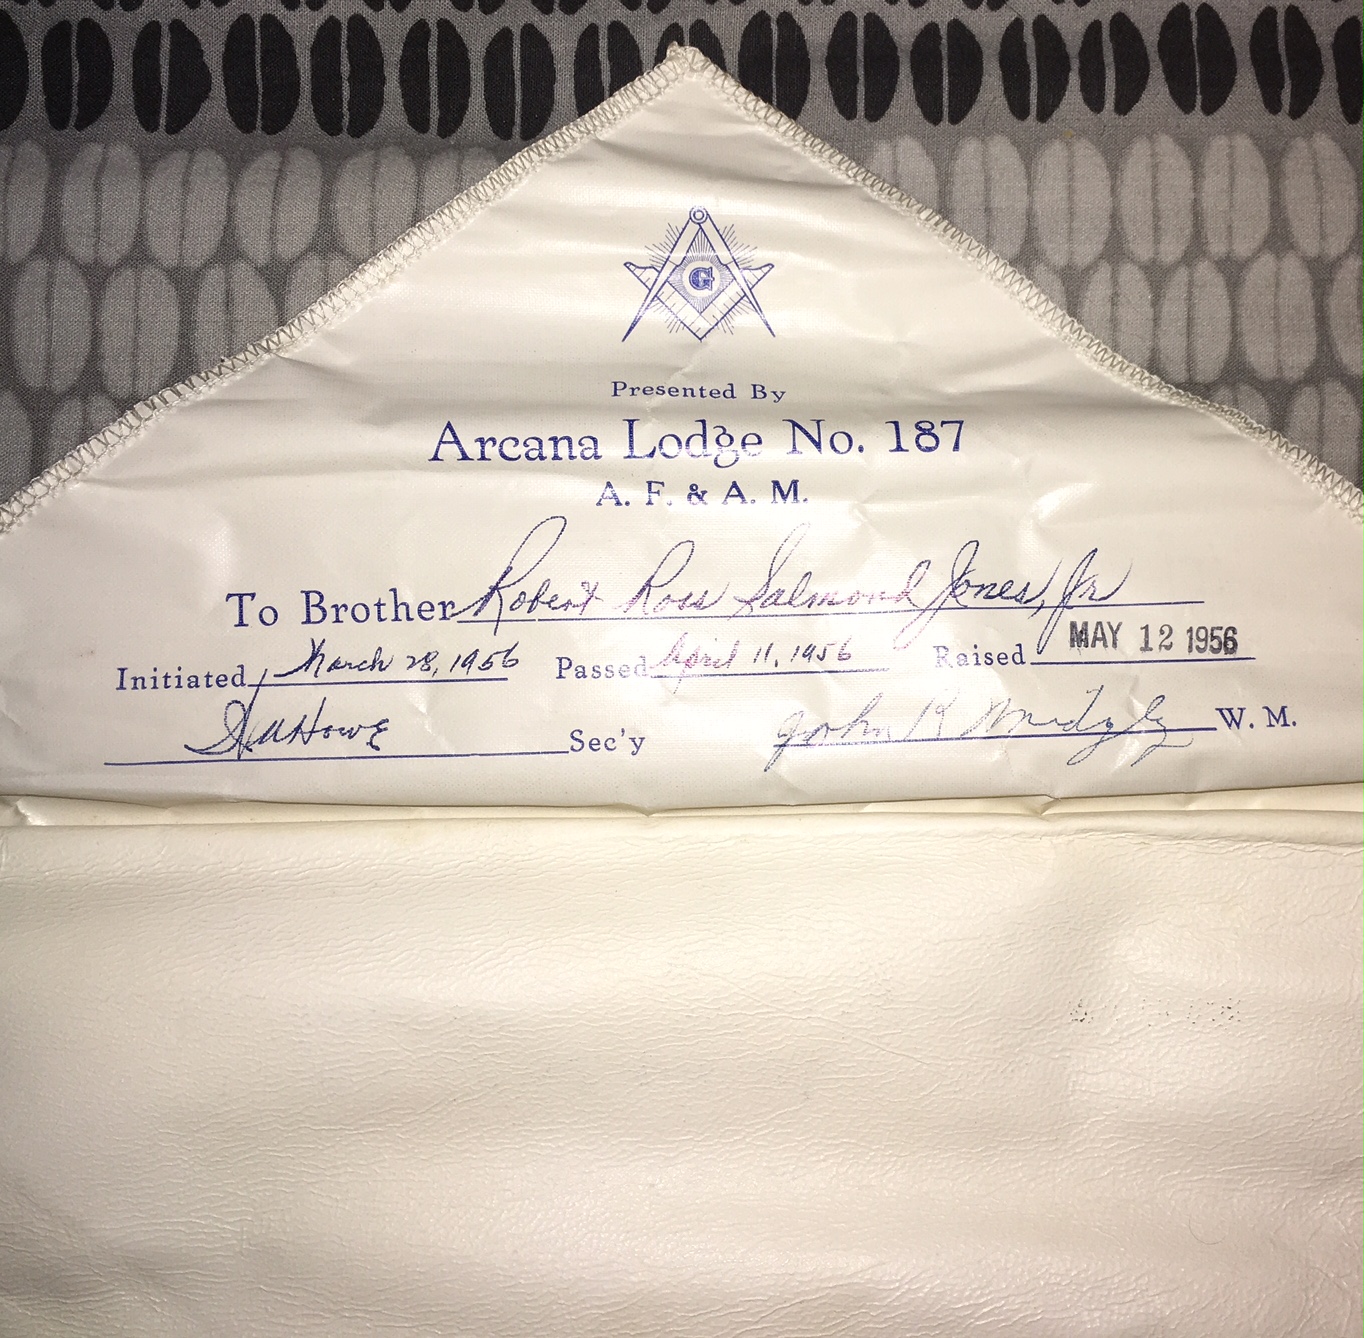 G
Presented By
Arcana Lodge No. 187
A. F. & A. M.
To Brother Robert Ross Salmond Jones, Jr
Initiated March 28, 1956 Passed April 11, 1956 Raised MAY 12 1956
Howe Sec'y John R W. M.